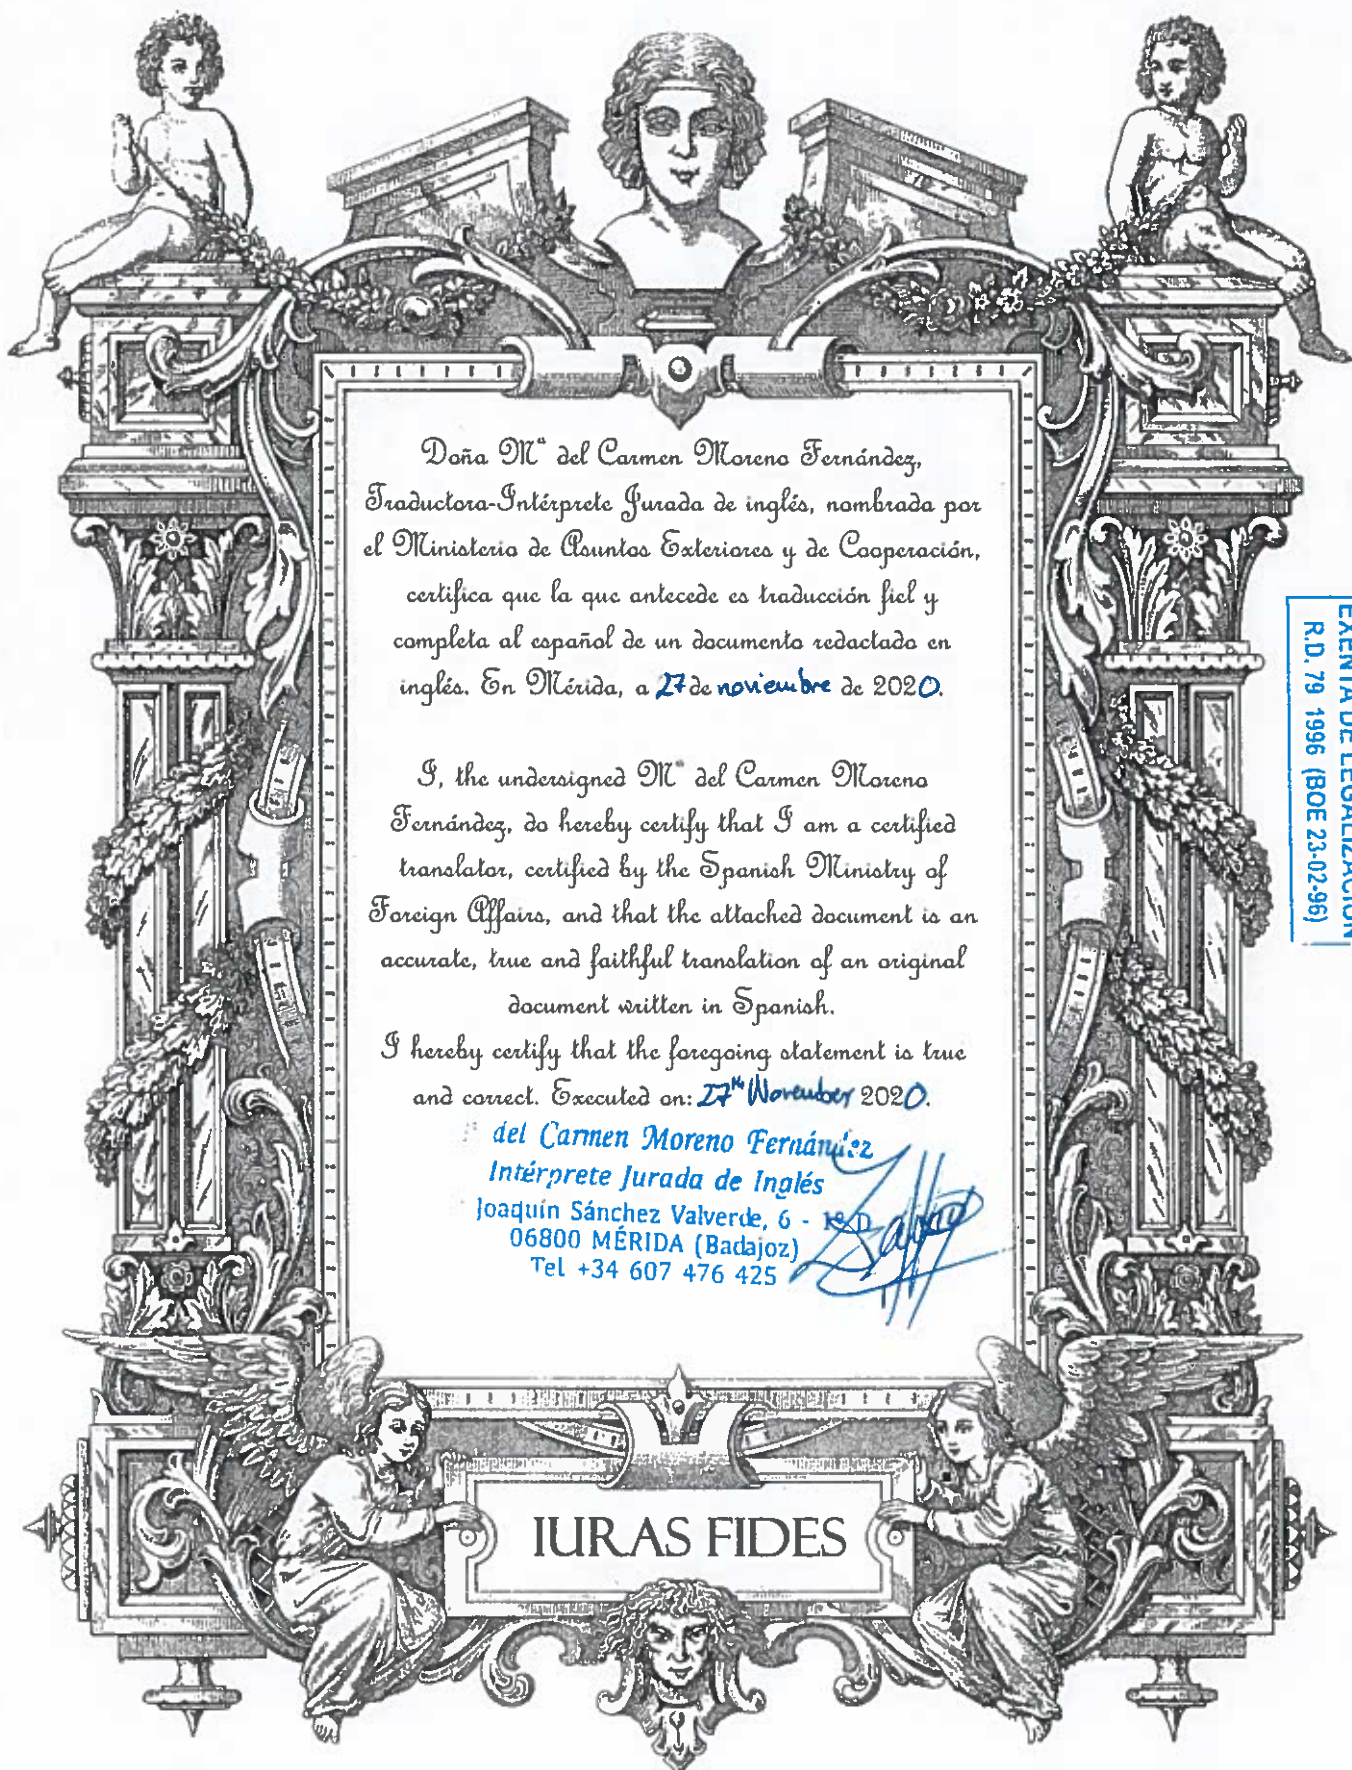 Doña Mª del Carmen Moreno Fernández,
Traductora-Intérprete Jurada de inglés, nombrada por
el Ministerio de Asuntos Exteriores y de Cooperación,
certifica que la que antecede es traducción fiel y
completa al español de un documento redactado en
inglés. En Mérida, a 27 de noviembre de 2020.
I, the undersigned Mª del Carmen Moreno
Fernández, do hereby certify that I am a certified
translator, certified by the Spanish Ministry of
Foreign Affairs, and that the attached document is an
accurate, true and faithful translation of an original
document written in Spanish.
I hereby certify that the foregoing statement is true
and correct. Executed on: 27th November 2020.
del Carmen Moreno Fernández
Intérprete Jurada de Inglés
Joaquín Sánchez Valverde, 6 -
06800 MÉRIDA (Badajoz)
Tel +34 607 476 425
EXENTA DE LEGALIZACIÓN
R.D. 79 1996 (BOE 23-02-96)
IURAS FIDES